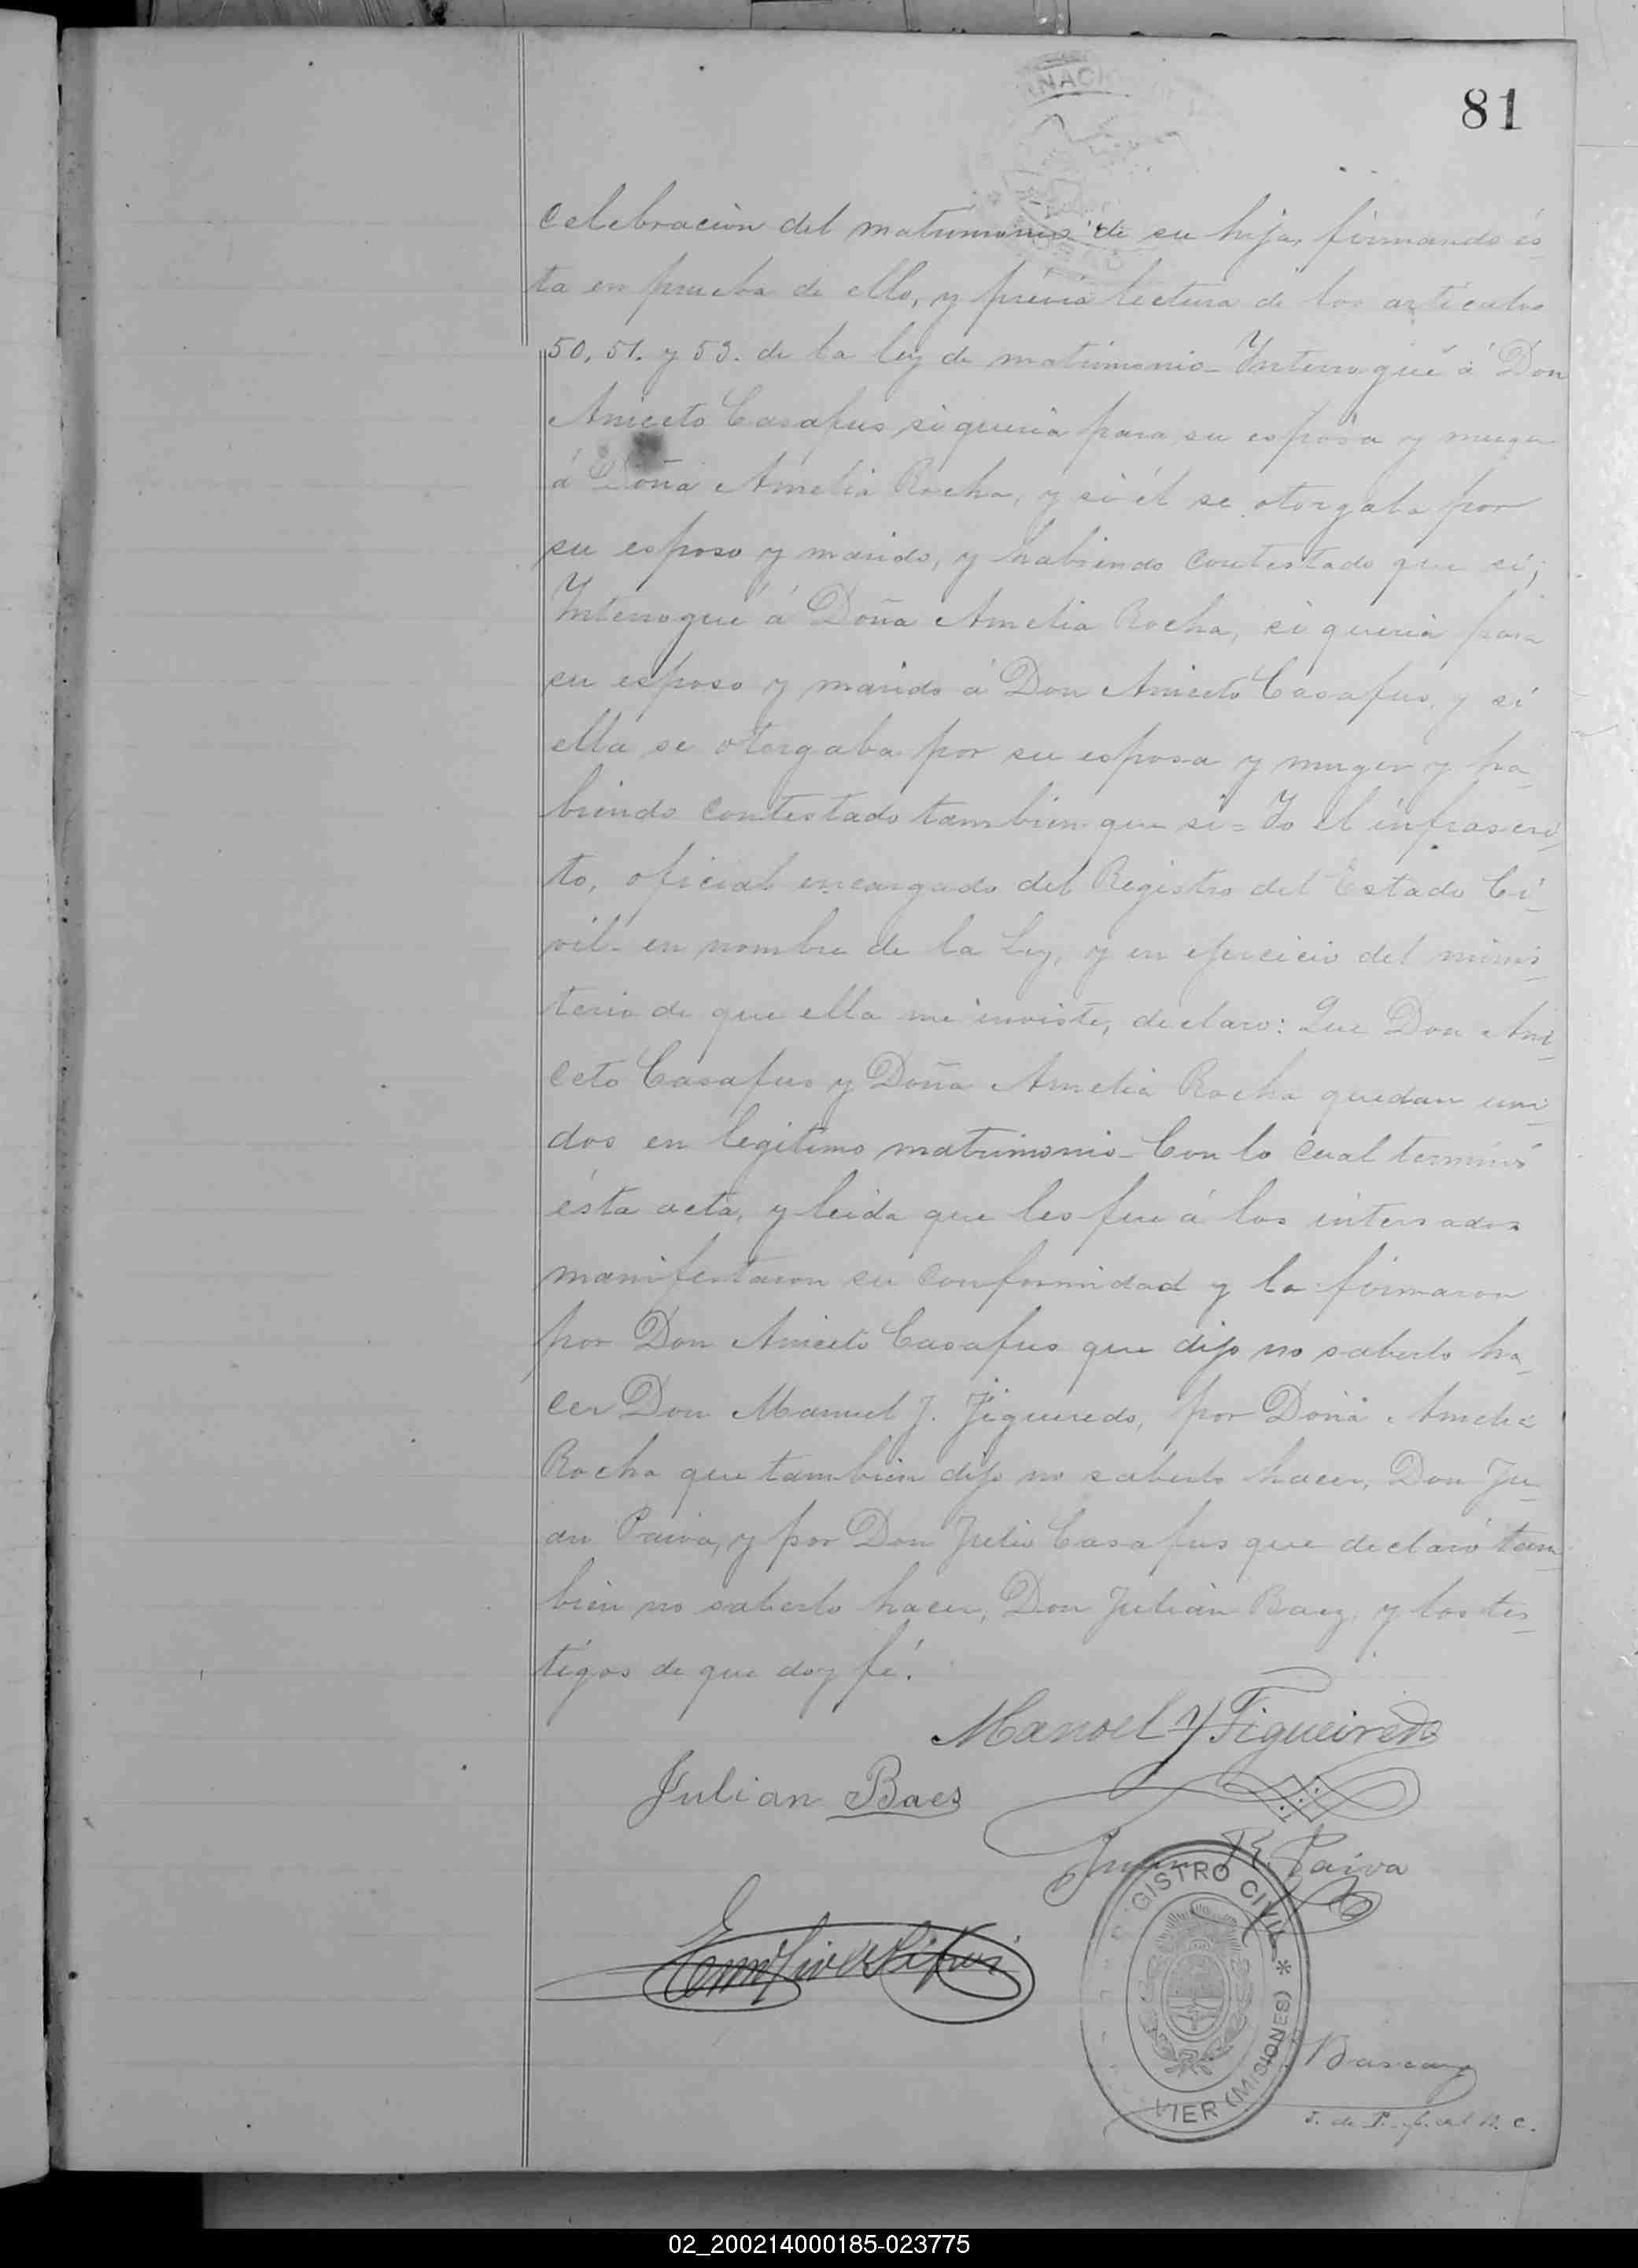 81
celebración del matrimonio de su hija, firmando és-
ta en prueba de ello, y prévia lectura de los artículos
50, 51. y 53. de la ley de matrimonio - Interrogué á Don
Aniceto Casafus si queria para su esposa y muger
á Doña Amelia Rocha, y si él se otorgaba por
su esposo y marido, y habiendo contestado que sí;
Interrogué á Doña Amelia Rocha, si queria para
su esposo y marido á Don Aniceto Casafus, y si
ella se otorgaba por su esposa y muger y ha-
biendo contestado tambien que si = Yo el infrascri-
to, oficial encargado del Registro del Estado Ci-
vil - en nombre de la Ley, y en ejercicio del minis-
terio de que ella me inviste, declaro: Que Don Ani-
ceto Casafus y Doña Amelia Rocha quedan uni-
dos en legitimo matrimonio - Con lo cual terminó
ésta acta, y leida que les fue á los intersados
manifestaron su conformidad y la firmaron
por Don Aniceto Casafus que dijo no saberlo ha-
cer Don Manuel J. Figueredo, por Doña Amelia
Rocha que tambien dijo no saberlo hacer, Don Ju-
an Paiva, y por Don Julio Casafus que declaró tam-
bien no saberlo hacer, Don Julián Baez, y los tes-
tigos de que doy fé.
Manoel Y Figueiredo
Julian Baes
Juan R. Paiva
GISTRO CIVIL * VIER (MISIONES)
J. de P. del R. C.
02_200214000185-023775